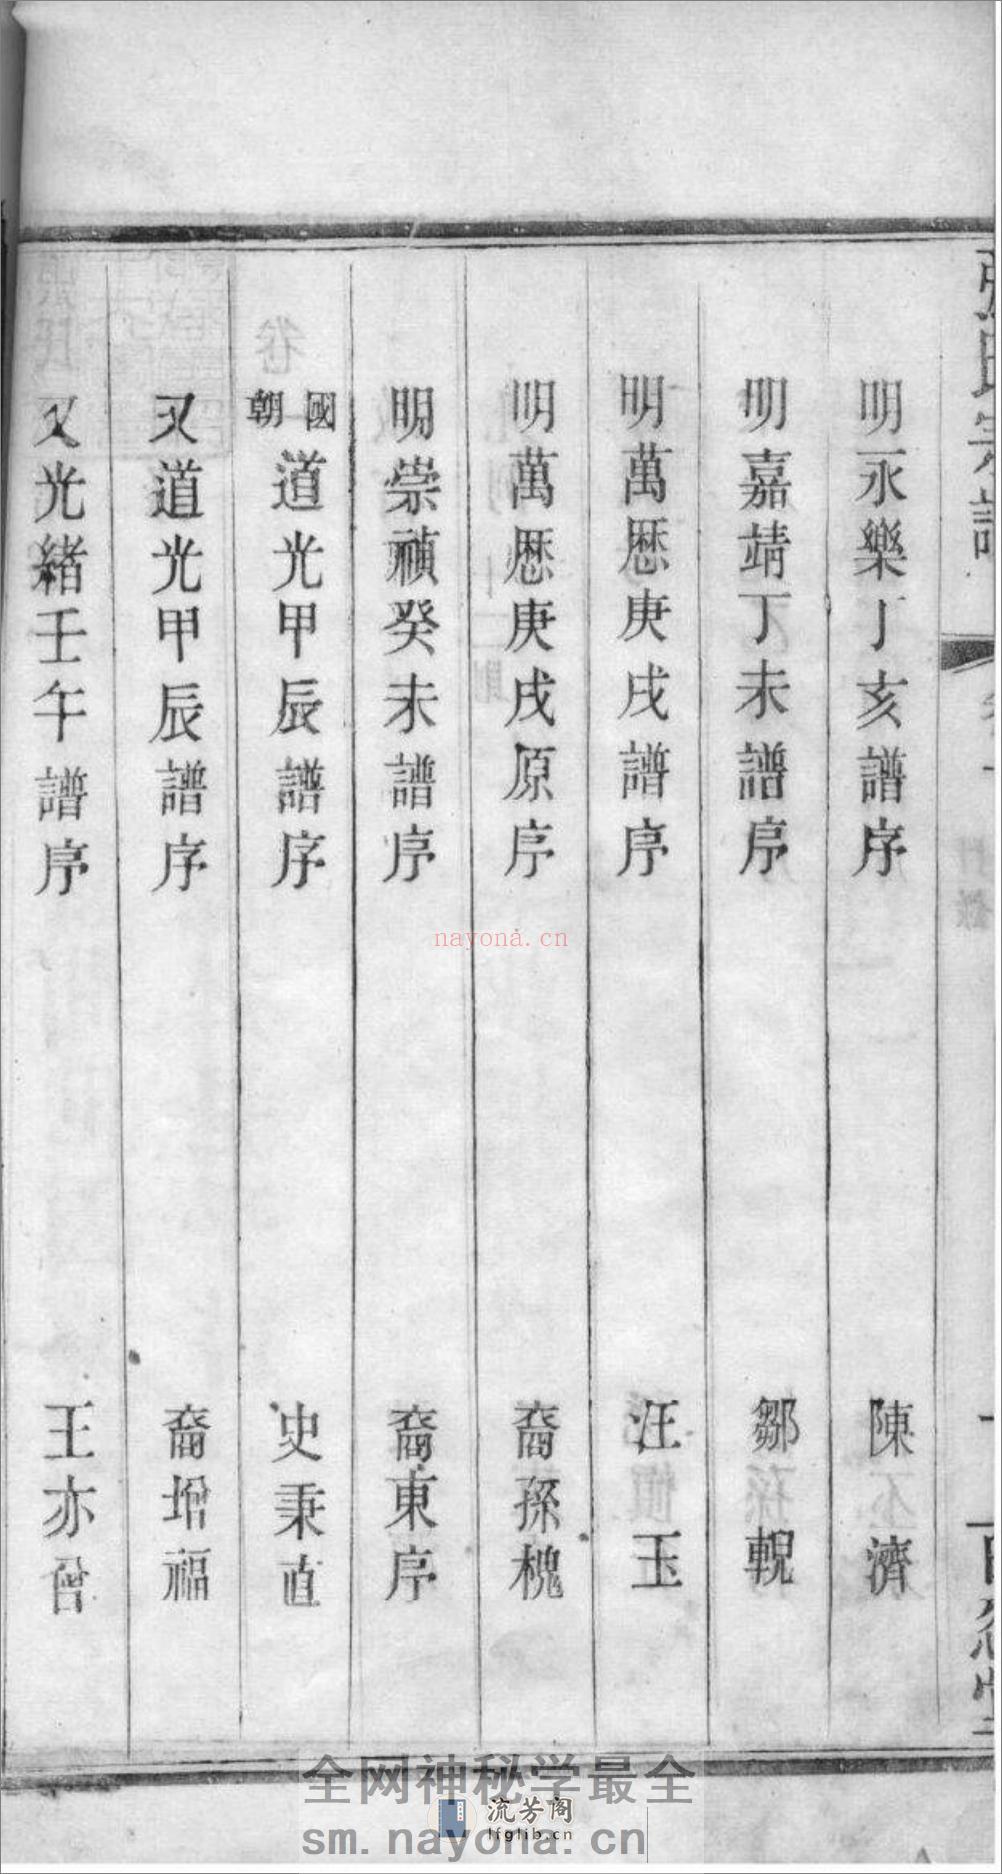 張氏宗譜 卷一 目錄 一 百忍堂
明永樂丁亥譜序 陳濟
明嘉靖丁未譜序 鄒輗
明萬厯庚戌譜序 汪玉
明萬厯庚戌原序 裔孫槐
明崇禎癸未譜序 裔東序
國朝道光甲辰譜序 史秉直
又道光甲辰譜序 裔增福
又光緒壬午譜序 王亦曾
nayona.cn
全网神秘学最全
流芳阁
lfglib.cn
sm.nayona.cn